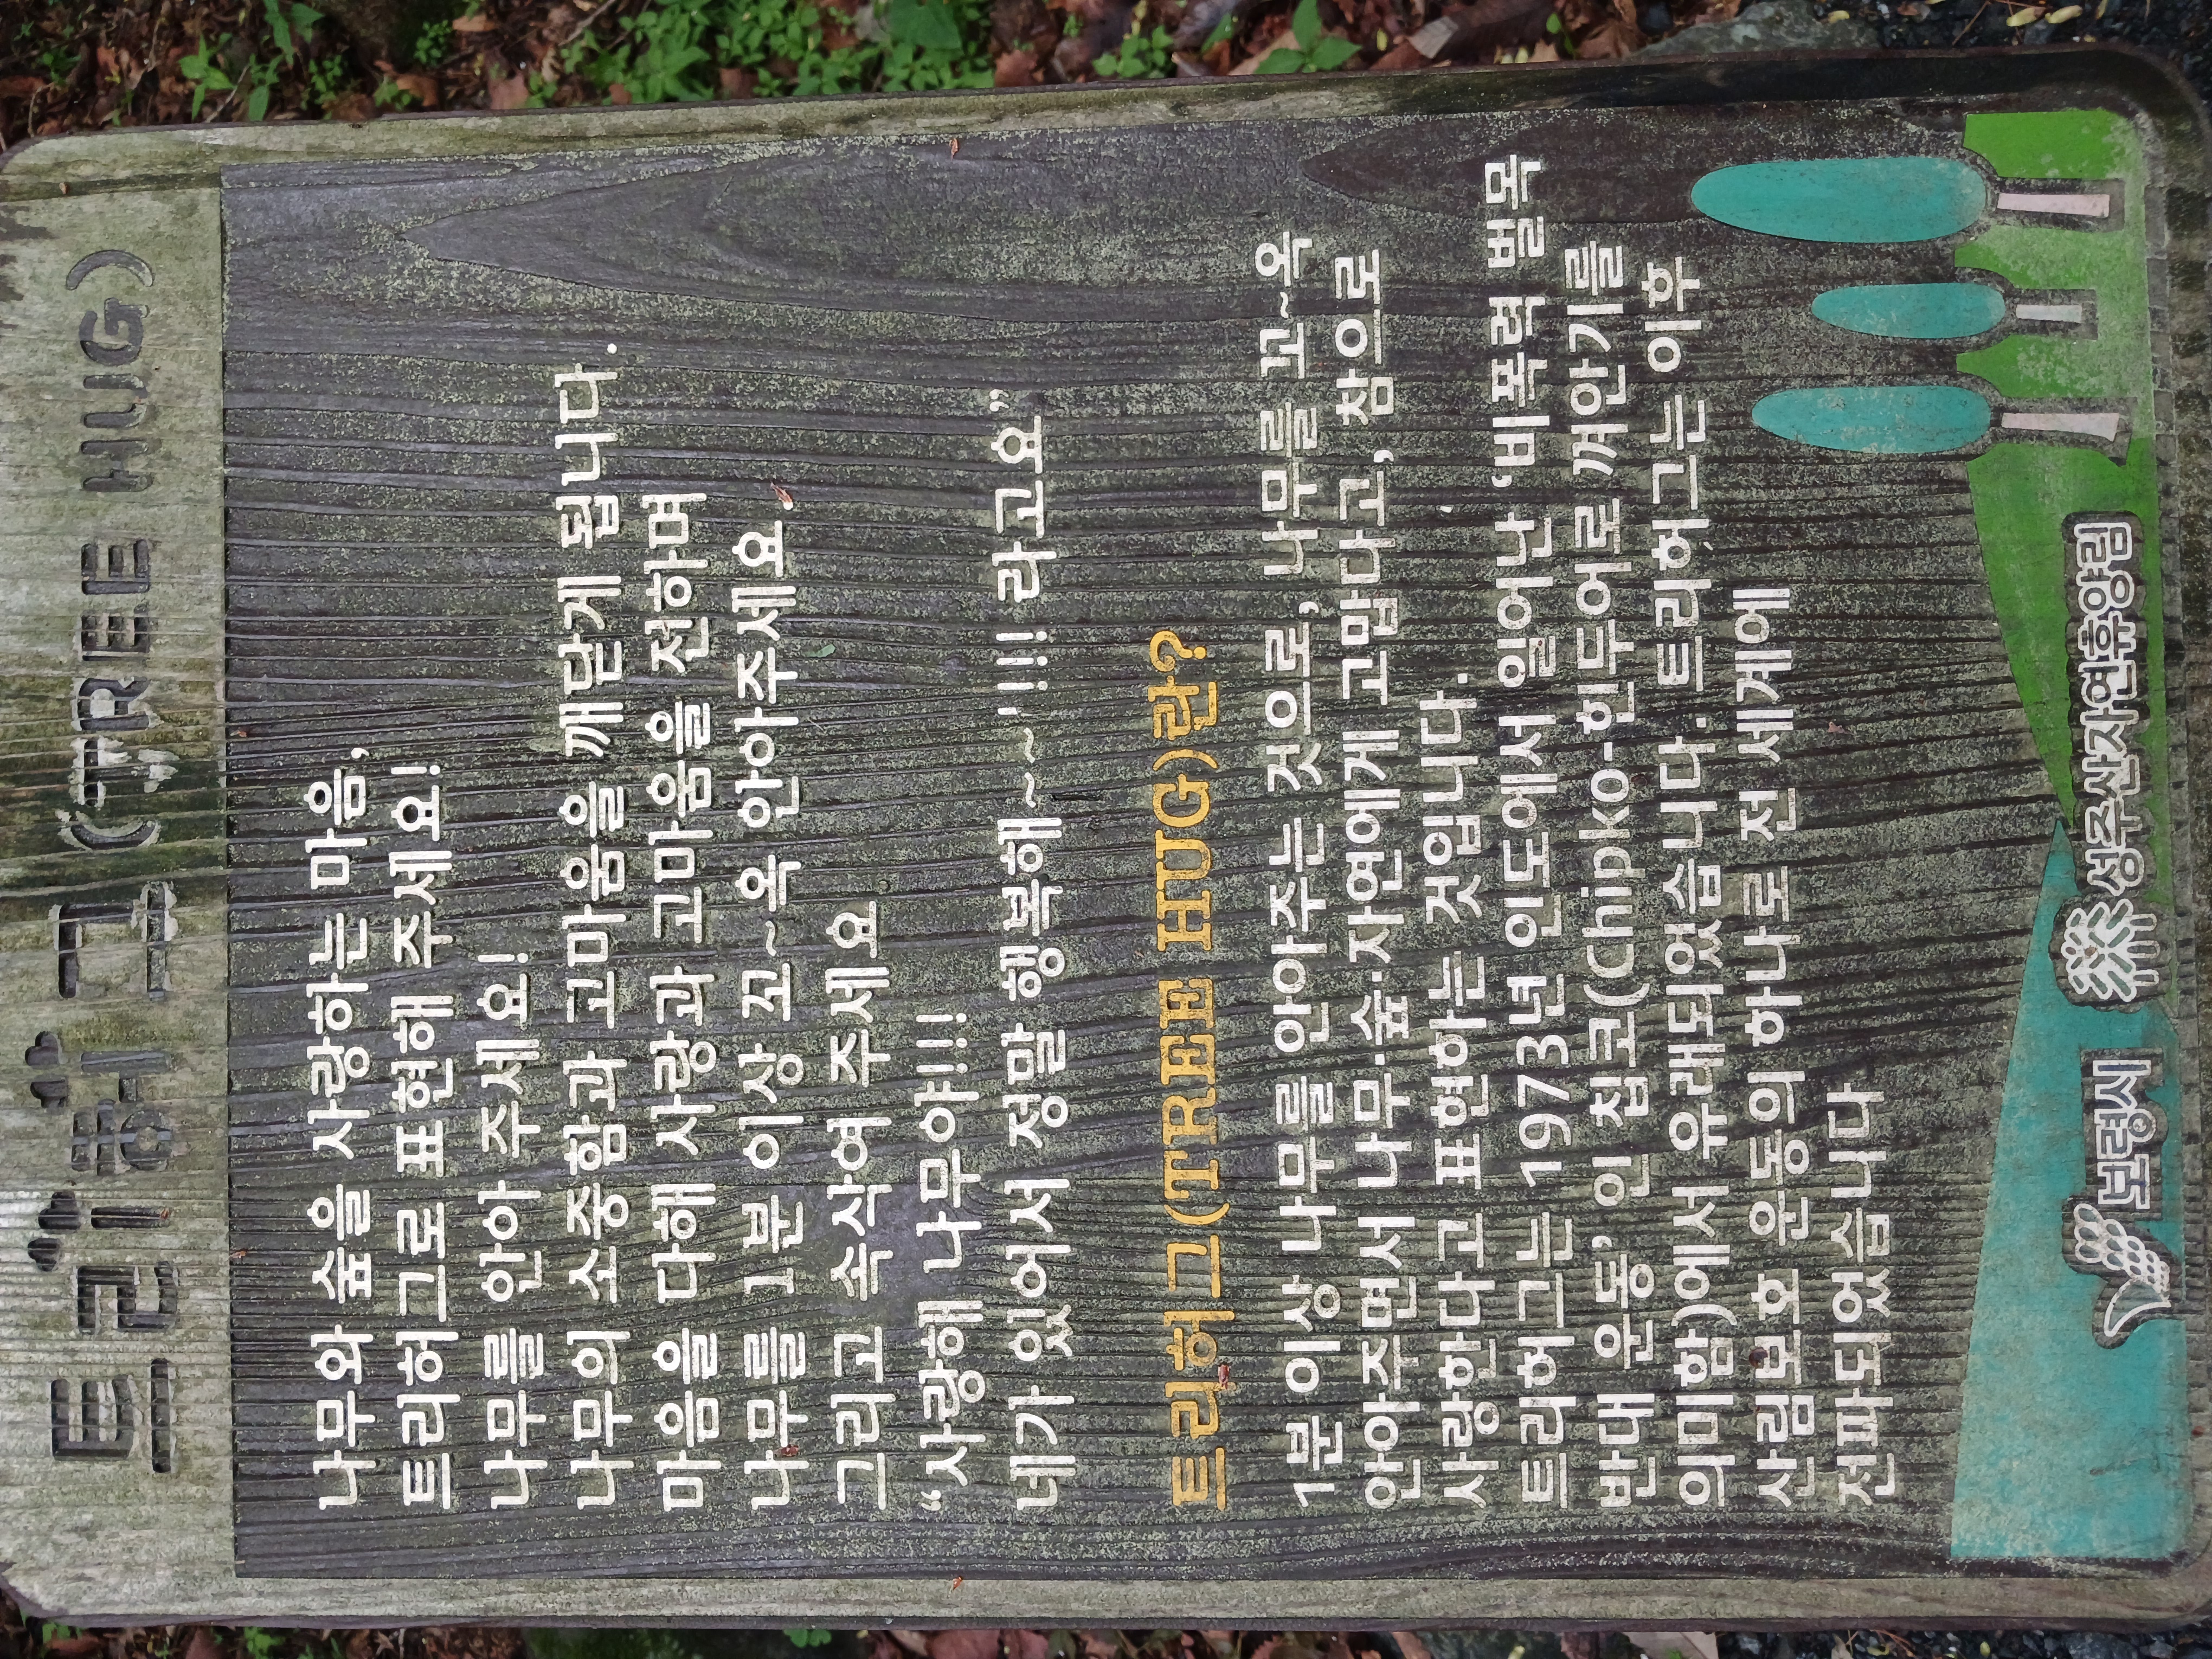 트리허그 (TREE HUG)
나무와 숲을 사랑하는 마음,
트리허그로 표현해 주세요!
나무를 안아 주세요!
나무의 소중함과 고마움을 깨닫게 됩니다.
마음을 다해 사랑과 고마움을 전하며
나무를 1분 이상 꼬~옥 안아주세요,
그리고 속삭여 주세요
“사랑해 나무야!!!
네가 있어서 정말 행복해~~~!!! 라고요”
트리허그(TREE HUG)란?
1분 이상 나무를 안아주는 것으로, 나무를 꼬~옥
안아주면서 나무·숲·자연에게 고맙다고, 참으로
사랑한다고 표현하는 것입니다.
트리허그는 1973년 인도에서 일어난 ‘비폭력 벌목
반대 운동’인 칩코(Chipko-힌두어로 껴안기를
의미함)에서 유래되었습니다. 트리허그는 이후
산림보호 운동의 하나로 전 세계에
전파되었습니다
보령시 성주산자연휴양림